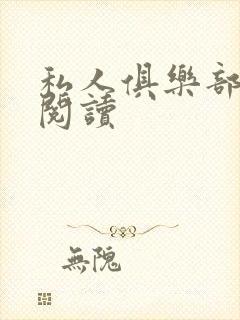 私人俱樂部
閱讀
無隗